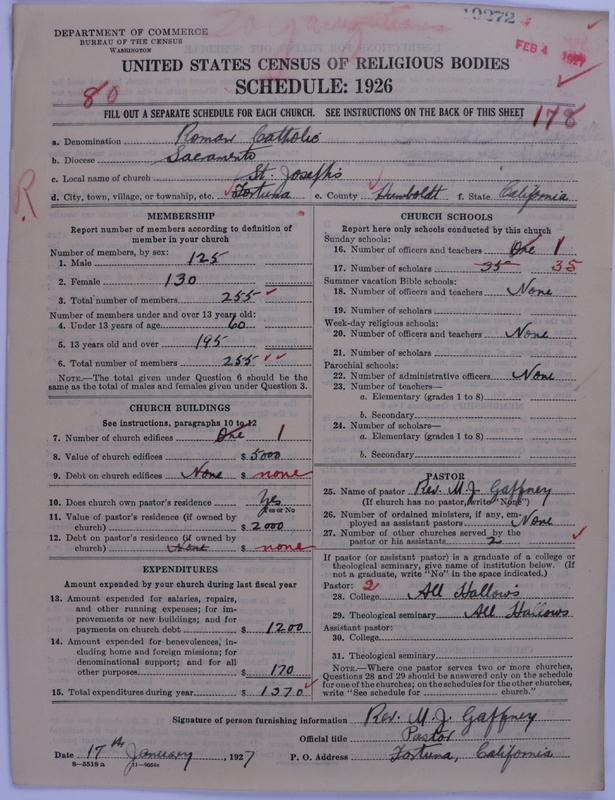 DEPARTMENT OF COMMERCE
BUREAU OF THE CENSUS
WASHINGTON
19272
FEB 4 1927
UNITED STATES CENSUS OF RELIGIOUS BODIES
SCHEDULE: 1926
80
FILL OUT A SEPARATE SCHEDULE FOR EACH CHURCH. SEE INSTRUCTIONS ON THE BACK OF THIS SHEET
178
a. Denomination Roman Catholic
b. Diocese Sacramento
c. Local name of church St. Joseph's
R
d. City, town, village, or township, etc. Fortuna e. County Humboldt f. State California
MEMBERSHIP
Report number of members according to definition of
member in your church
Number of members, by sex:
1. Male 125
2. Female 130
3. Total number of members 255
Number of members under and over 13 years old:
4. Under 13 years of age 60
5. 13 years old and over 195
6. Total number of members 255
NOTE.—The total given under Question 6 should be the
same as the total of males and females given under Question 3.
CHURCH BUILDINGS
See instructions, paragraphs 10 to 12
7. Number of church edifices One 1
8. Value of church edifices $ 5000
9. Debt on church edifices None $ none
10. Does church own pastor's residence Yes
Yes or No
11. Value of pastor's residence (if owned by
church) $ 2000
12. Debt on pastor's residence (if owned by
church) None $ none
EXPENDITURES
Amount expended by your church during last fiscal year
13. Amount expended for salaries, repairs,
and other running expenses; for im-
provements or new buildings; and for
payments on church debt $ 1200
14. Amount expended for benevolences, in-
cluding home and foreign missions; for
denominational support; and for all
other purposes $ 170
15. Total expenditures during year $ 1370
CHURCH SCHOOLS
Report here only schools conducted by this church
Sunday schools:
16. Number of officers and teachers One 1
17. Number of scholars 35 35
Summer vacation Bible schools:
18. Number of officers and teachers None
19. Number of scholars
Week-day religious schools:
20. Number of officers and teachers None
21. Number of scholars
Parochial schools:
22. Number of administrative officers None
23. Number of teachers—
a. Elementary (grades 1 to 8)
b. Secondary
24. Number of scholars—
a. Elementary (grades 1 to 8)
b. Secondary
PASTOR
25. Name of pastor Rev. M. J. Gaffney
(If church has no pastor, write "None")
26. Number of ordained ministers, if any, em-
ployed as assistant pastors None
27. Number of other churches served by the
pastor or his assistants 2
If pastor (or assistant pastor) is a graduate of a college or
theological seminary, give name of institution below. (If
not a graduate, write "No" in the space indicated.)
Pastor: 2
28. College All Hallows
29. Theological seminary All Hallows
Assistant pastor:
30. College
31. Theological seminary
NOTE.—Where one pastor serves two or more churches,
Questions 28 and 29 should be answered only on the schedule
for one of the churches; on the schedules for the other churches,
write "See schedule for church."
Signature of person furnishing information Rev. M. J. Gaffney
Official title Pastor
Date 17th January, 1927 P. O. Address Fortuna, California
8—5518 a